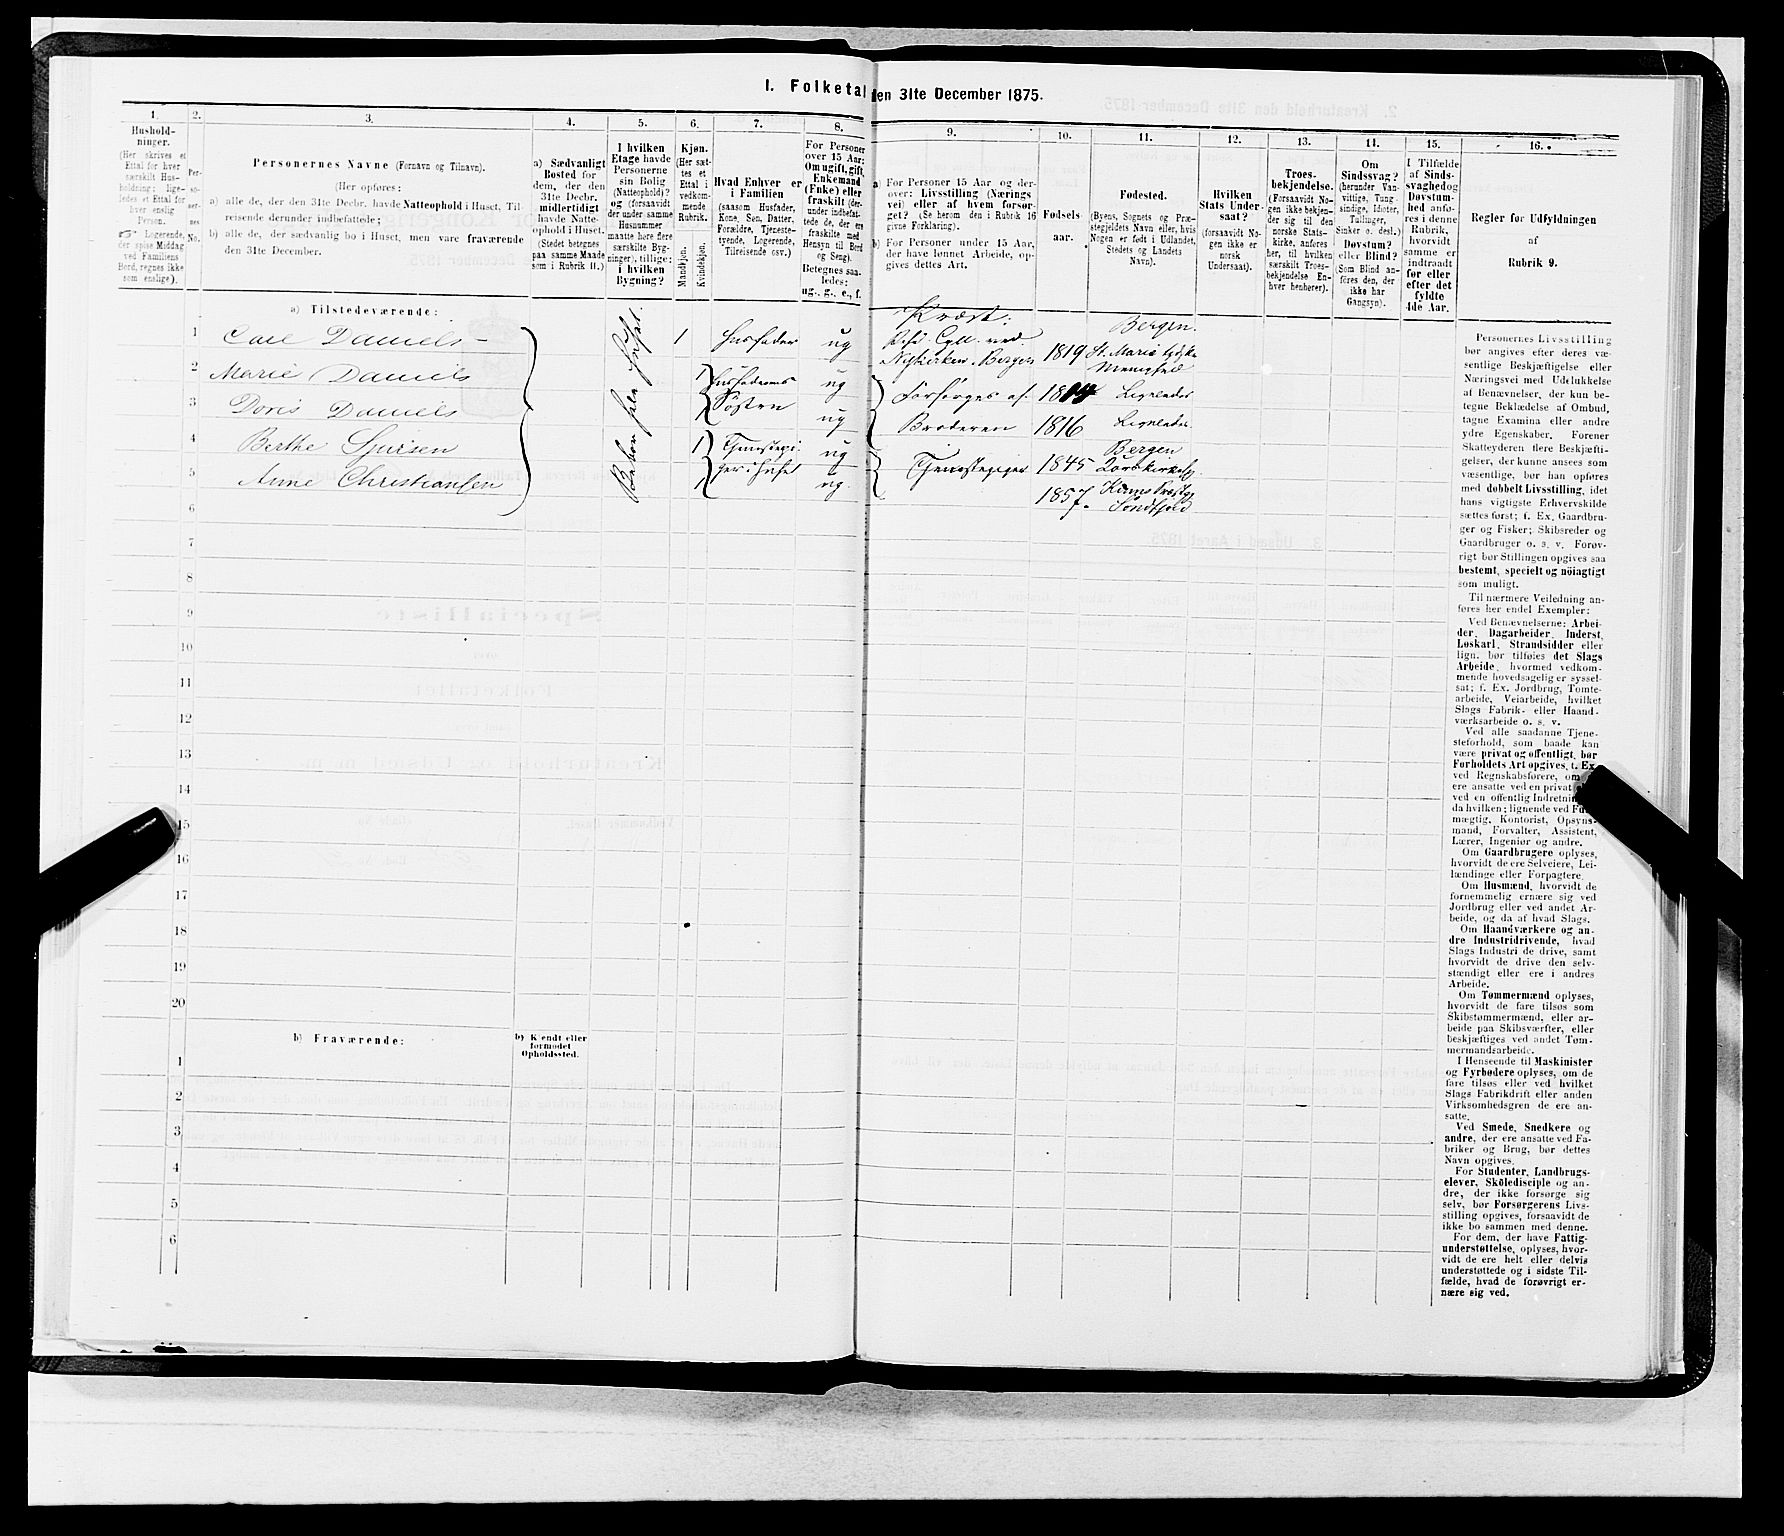 I. Folketal den 31te December 1875.
1. 2. 3. 4. 5. 6. 7. 8. 9. 10. 11. 12. 13. 14. 15. 16.
Hushold-
ninger.
(Her skrives et
Ettal for hver
særskilt Hus-
holdning; lige-
ledes et Ettal for
hver enslig
Person.
Logerende,
der spise Middag
ved Familiens
Bord, regnes ikke
som enslige).
Per-
so-
ner-
nes
No.
Personernes Navne (Fornavn og Tilnavn).
(Her opføres:
a) alle de, der den 31te Decbr. havde Natteophold i Huset, Til-
reisende derunder indbefattede;
b) alle de, der sædvanlig bo i Huset, men vare fraværende
den 31te December.
a) Sædvanligt
Bosted for
dem, der den
31te Decbr.
midlertidigt
havde Natte-
ophold i Huset.
(Stedet betegnes
paa samme Maade
som i Rubrik 11.)
I hvilken
Etage havde
Personerne
sin Bolig
(Natteophold)?
og (forsaavidt
der under samme
Husnummer
maatte høre flere
særskilte Byg-
ninger), tillige:
i hvilken
Bygning?
Kjøn.
(Her sæt-
tes et
Ettal i
vedkom-
mende
Rubrik.
Mandkjøn.
Kvindekjøn.
Hvad Enhver er
i Familien
(saasom Husfader,
Kone, Søn, Datter,
Forældre, Tjeneste-
tyende, Logerende,
Tilreisende osv.)
For Personer
over 15 Aar:
Om ugift, gift,
Enkemand
(Enke) eller
fraskilt (der-
under indbefat-
tede de, der ere
fraskilte med
Hensyn til Bord
og Seng).
Betegnes saa-
ledes:
ug., g., e., f.
a) For Personer 15 Aar og der-
over: Livsstilling (Nærings
vei) eller af hvem forsør-
get? (Se herom den i Rubrik 16
givne Forklaring).
b) For Personer under 15 Aar,
der have lønnet Arbeide, op-
gives dettes Art.
Fødsels-
aar.
Fødested.
(Byens, Sognets og Præ-
stegjeldets Navn eller, hvis
Nogen er født i Udlandet,
Stedets og Landets
Navn).
Hvilken
Stats Under-
saat?
(forsaavidt No-
gen ikke er
norsk
Undersaat).
Troes-
bekjendelse.
(Forsaavidt No-
gen ikke bekjen-
der sig til den
norske Stats-
kirke, anføres
her, til hvilken
særskilt Troes-
bekjendelse En-
hver henhører).
Om
Sindssvag?
(herunder Van-
vittige, Tung-
sindige, Idioter,
Tullinger,
Sinker o. desl.)
Døvstum?
eller Blind?
(Som Blind an-
føres den, der
ikke har
Gangsyn).
I Tilfælde
af Sinds-
svaghed og
Døvstum-
hed anfø-
res i denne
Rubrik,
hvorvidt
samme er
indtraadt
før eller
efter det
fyldte
4de Aar.
Regler for Udfyldningen
af
Rubrik 9.
a) Tilstedeværende:
1 Carl Daniels 1 Husfader ug 1819 Bergen. St. Maria tydske Menighed
2 Marie Daniels 1 Husfaderens ug Forsørges af Ligeledes
3 Doris Daniels 1 Søstre ug Broderen 1816 Ligeledes.
4 Berthe 1 Tjenestepi- ug Tjenestepiger 1845 Bergen
5 Anne Christiansen 1 ger i Huset ug. 1857. Kinns Prestgj Søndfjord
6
7
8
9
10
11
12
13
14
15
16
17
18
19
20
b) Fraværende:
b) Kjendt eller
formodet
Opholdssted.
1
2
3
4
5
6
Personernes Livsstilling
bør angives efter deres væ-
sentlige Beskjæftigelse eller
Næringsvei med Udelukkelse
af Benævnelser, der kun be-
tegne Beklædelse af Ombud,
tagne Examina eller andre
ydre Egenskaber. Forener
Skatteyderen flere Beskjæfti-
gelser, der kunne ansees som
væsentlige, bør han opføres
med dobbelt Livsstilling, idet
hans vigtigste Erhvervskilde
sættes først; f. Ex. Gaardbru-
ger og Fisker; Skibsreder og
Gaardbruger o. s. v. Forøv-
rigt bør Stillingen opgives saa
bestemt, specielt og nöiagtigt
som muligt.
Til nærmere Veiledning an-
føres her endel Exempler:
Ved Benævnelserne: Arbei-
der, Dagarbeider, Inderst,
Løskarl, Strandsidder eller
lign. bør tilføies det Slags
Arbeide, hvormed vedkom-
mende hovedsagelig er syssel-
sat; f. Ex. Jordbrug, Tomte-
arbeide, Veiarbeide, hvilket
Slags Fabrik- eller Haand-
værksarbeide o. s. v.
Ved alle saadanne Tjene-
steforhold, som baade kan
være privat og offentligt, bør
Forholdets Art opgives, t. Ex.
ved Regnskabsførere, om
ere ansatte ved en privat
ved en offentlig Indretnin
da hvilken; lignende ved Fuld-
mægtig, Kontorist, Opsyns-
mand, Forvalter, Assistent,
Lærer, Ingeniør og andre.
Om Gaardbrugere oplyses,
hvorvidt de ere Selveiere, Lei-
lændinge eller Forpagtere.
Om Husmænd, hvorvidt de
fornemmelig ernære sig ved
Jordbrug eller ved andet Ar-
beide, og da af hvad Slags.
Om Haandværkere og an-
dre Industridrivende, hvad
Slags Industri de drive, samt
hvorvidt de drive den selv-
stændigt eller ere i andres
Arbeide.
Om Tømmermænd oplyses,
hvorvidt de fare tilsøs som
Skibstømmermænd, eller ar-
beide paa Skibsværfter, eller
beskjæftiges ved andet Tøm-
mermandsarbeide.
I Henseende til Maskinister
og Fyrbødere oplyses, om de
fare tilsøs eller ved hvilket
Slags Fabrikdrift eller anden
Virksomhedsgren de ere an-
satte.
Ved Smede, Snedkere og
andre, der ere ansatte ved Fa-
briker og Brug, bør dettes
Navn opgives.
For Studenter, Landbrugs-
elever, Skoledisciple og an-
dre, der ikke forsørge sig
selv, bør Forsørgerens Livs-
stilling opgives, forsaavidt de
ikke bo sammen med denne.
For dem, der have Fattig-
understøttelse, oplyses, hvor-
vidt de ere helt eller delvis
understøttede og i sidste Til-
fælde, hvad de forøvrigt er-
nære sig ved.